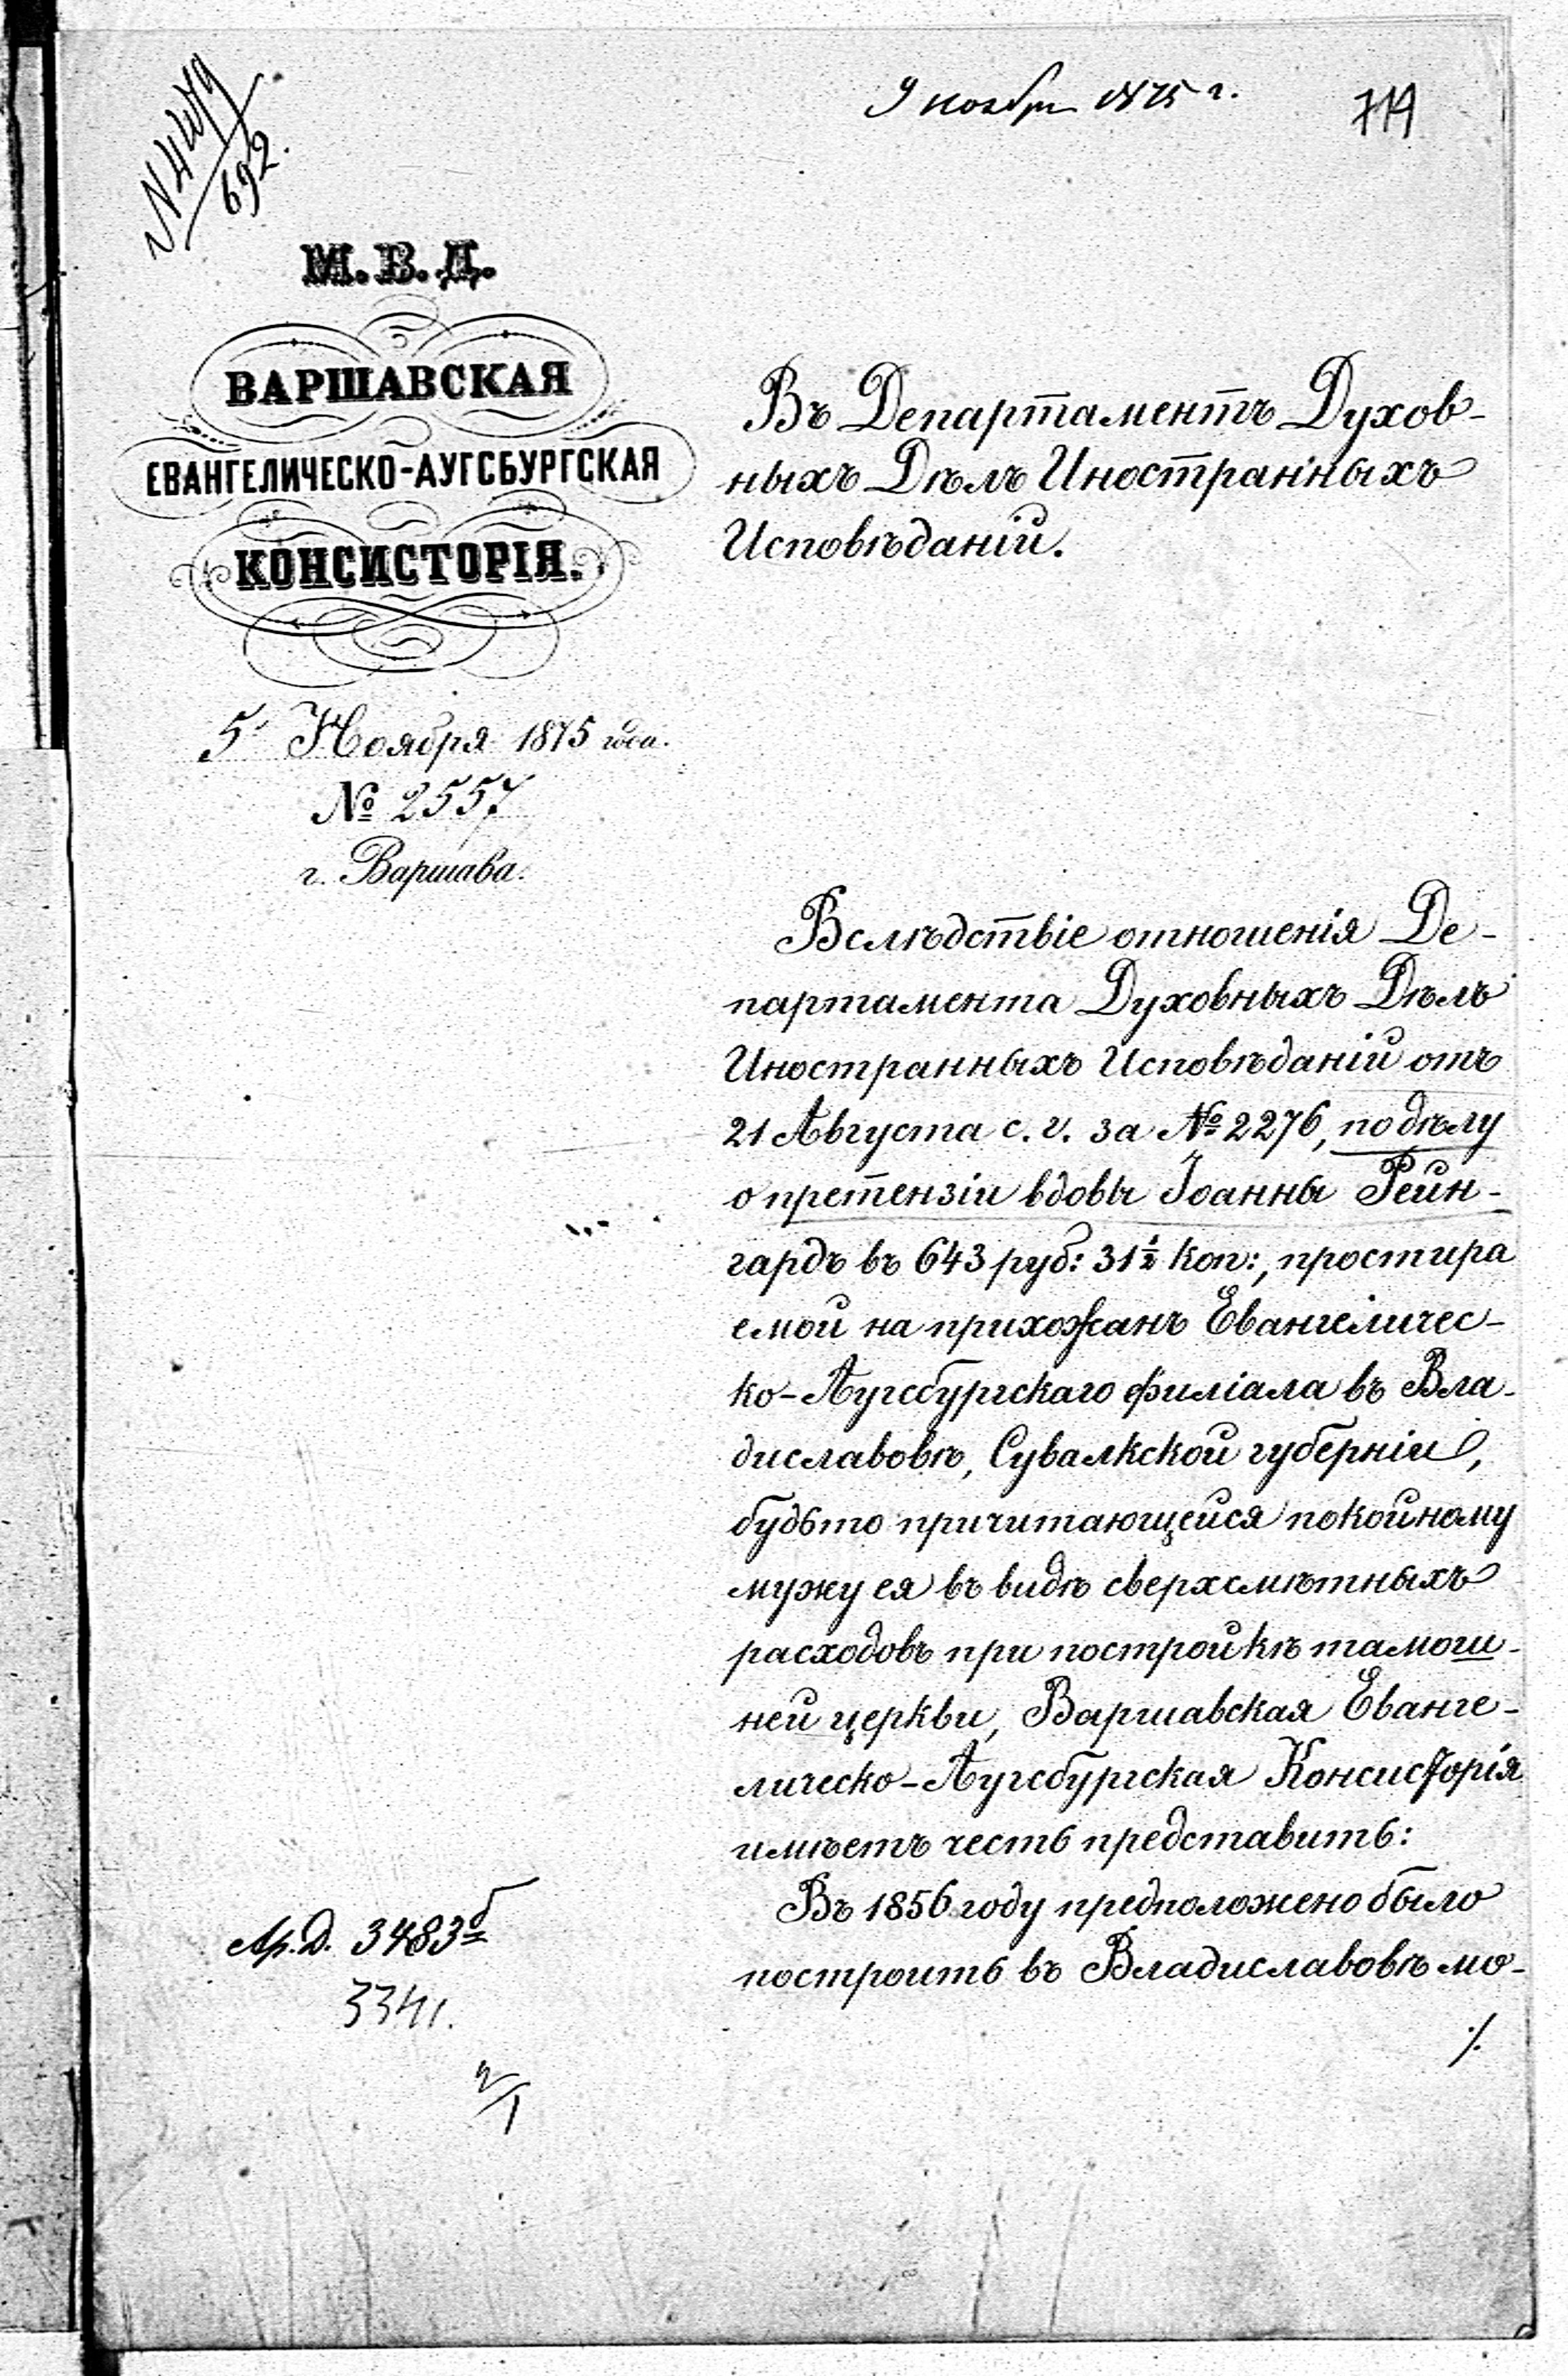 9 ноября 1875 г.
719
692.
М. В. Д.
ВАРШАВСКАЯ
ЕВАНГЕЛИЧЕСКО-АУГСБУРГСКАЯ
КОНСИСТОРІЯ.
5 Ноября 1875 года.
№ 2557
г. Варшава.
Въ Департаментъ Духов-
ныхъ Дѣлъ Иностранныхъ
Исповѣданій.
Вслѣдствіе отношенія Де-
партамента Духовныхъ Дѣлъ
Иностранныхъ Исповѣданій отъ
21 Августа с. г. за № 2276, по дѣлу
о претензіи вдовы Іоанны Рейн-
гардъ въ 643 руб: 31½ коп:, простира
емой на прихожанъ Евангеличес-
ко-Аугсбургскаго филіала въ Вла-
диславовѣ, Сувалкской губерніи,
будьто причитающейся покойному
мужу ея въ видѣ сверхсмѣтныхъ
расходовъ при постройкѣ тамош-
ней церкви, Варшавская Еванге-
лическо-Аугсбургская Консисторія
имѣетъ честь представить:
Въ 1856 году предположено было
построить въ Владиславовѣ мо-
./.
Ар. д. 3483б
3341.
2/1